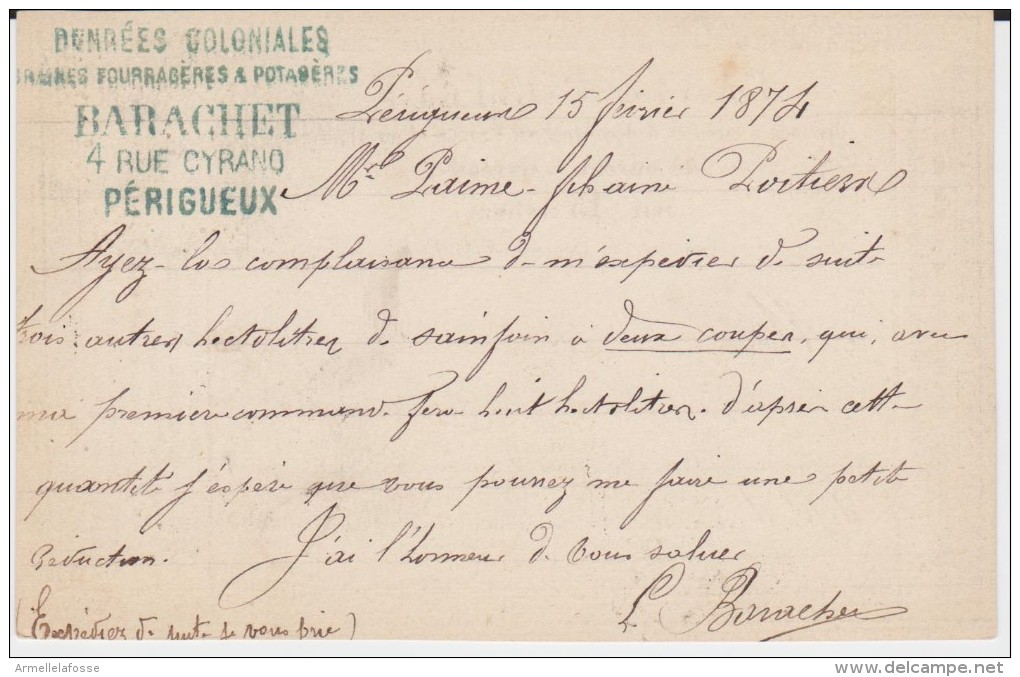 DENRÉES COLONIALES
GRAINES FOURRAGÈRES & POTAGÈRES
BARACHET
4 RUE CYRANO
PÉRIGUEUX
Périgueux 15 février 1874
Mr Paime- Poitiers
Ayez-las complaisance de m'expédier de suite
trois autres hectolitres de sainfoin à deux coupes, qui, avec
ma première commande fera huit hectolitres. d'après cette
quantité j'espère que vous pourrez me faire une petite
réduction. J'ai l'honneur de vous saluer
L Barachet
(Expédiez de suite je vous prie)
Armellelafosse
www.delcampe.net